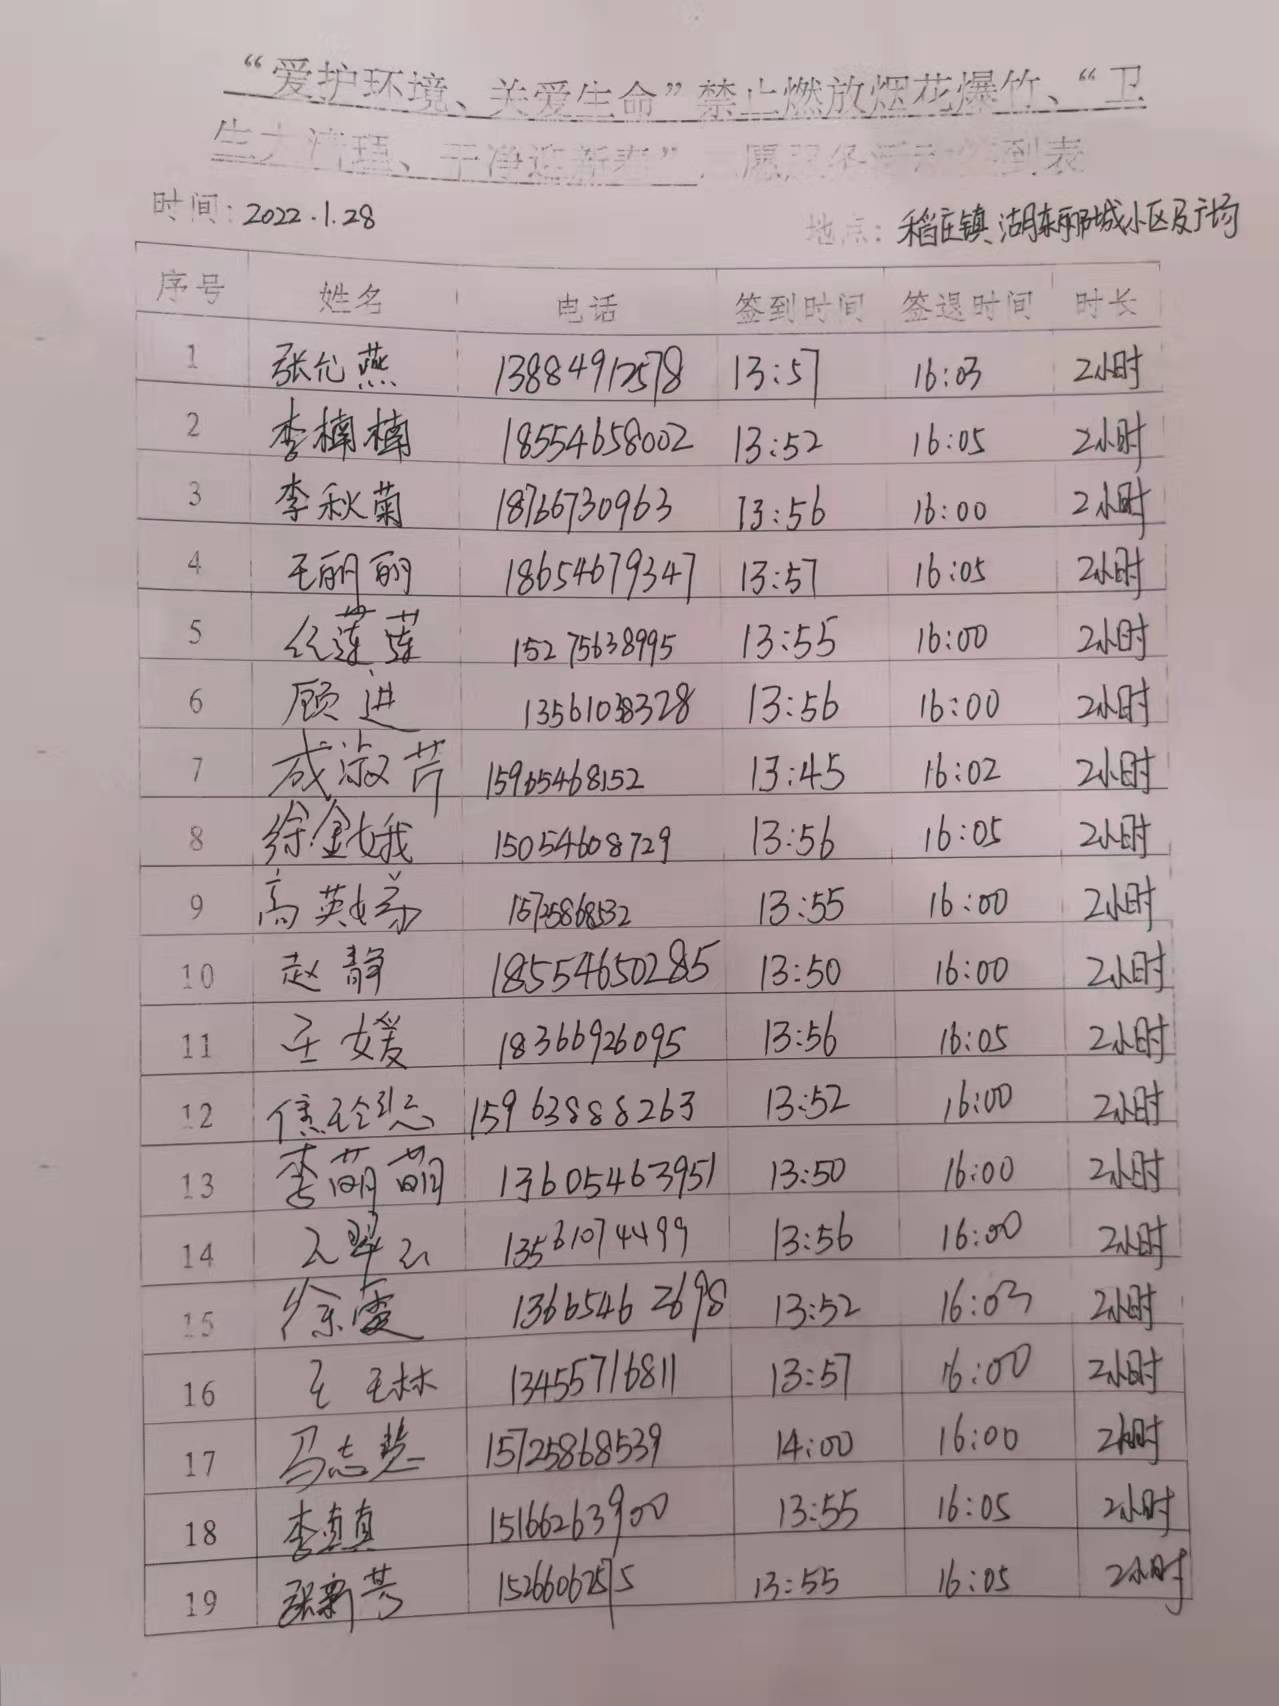 “爱护环境、关爱生命”禁止燃放烟花爆竹、“卫
生大清理、干净迎新春”志愿服务活动签到表
时间：2022.1.28 地点：稻庄镇湖东郦城小区及广场
序号 姓名 电话 签到时间 签退时间 时长
1 张允燕 13884912578 13:57 16:03 2小时
2 李楠楠 18554658002 13:52 16:05 2小时
3 李秋菊 18766730963 13:56 16:00 2小时
4 王丽丽 18654679347 13:57 16:05 2小时
5 任莲莲 15275638995 13:55 16:00 2小时
6 顾进 13561038328 13:56 16:00 2小时
7 成淑芹 15965468152 13:45 16:02 2小时
8 徐金娥 15054608729 13:56 16:05 2小时
9 高英娣 15725868532 13:55 16:00 2小时
10 赵静 18554650285 13:50 16:00 2小时
11 王媛 18366926095 13:56 16:05 2小时
12 15963888263 13:52 16:00 2小时
13 李萌萌 13605463951 13:50 16:00 2小时
14 王翠云 13561074499 13:56 16:00 2小时
15 徐霞 13665462698 13:52 16:03 2小时
16 王玉林 13455716811 13:57 16:00 2小时
17 马志慧 15725868539 14:00 16:00 2小时
18 李真真 15166263900 13:55 16:05 2小时
19 张新芳 15266067575 13:55 16:05 2小时